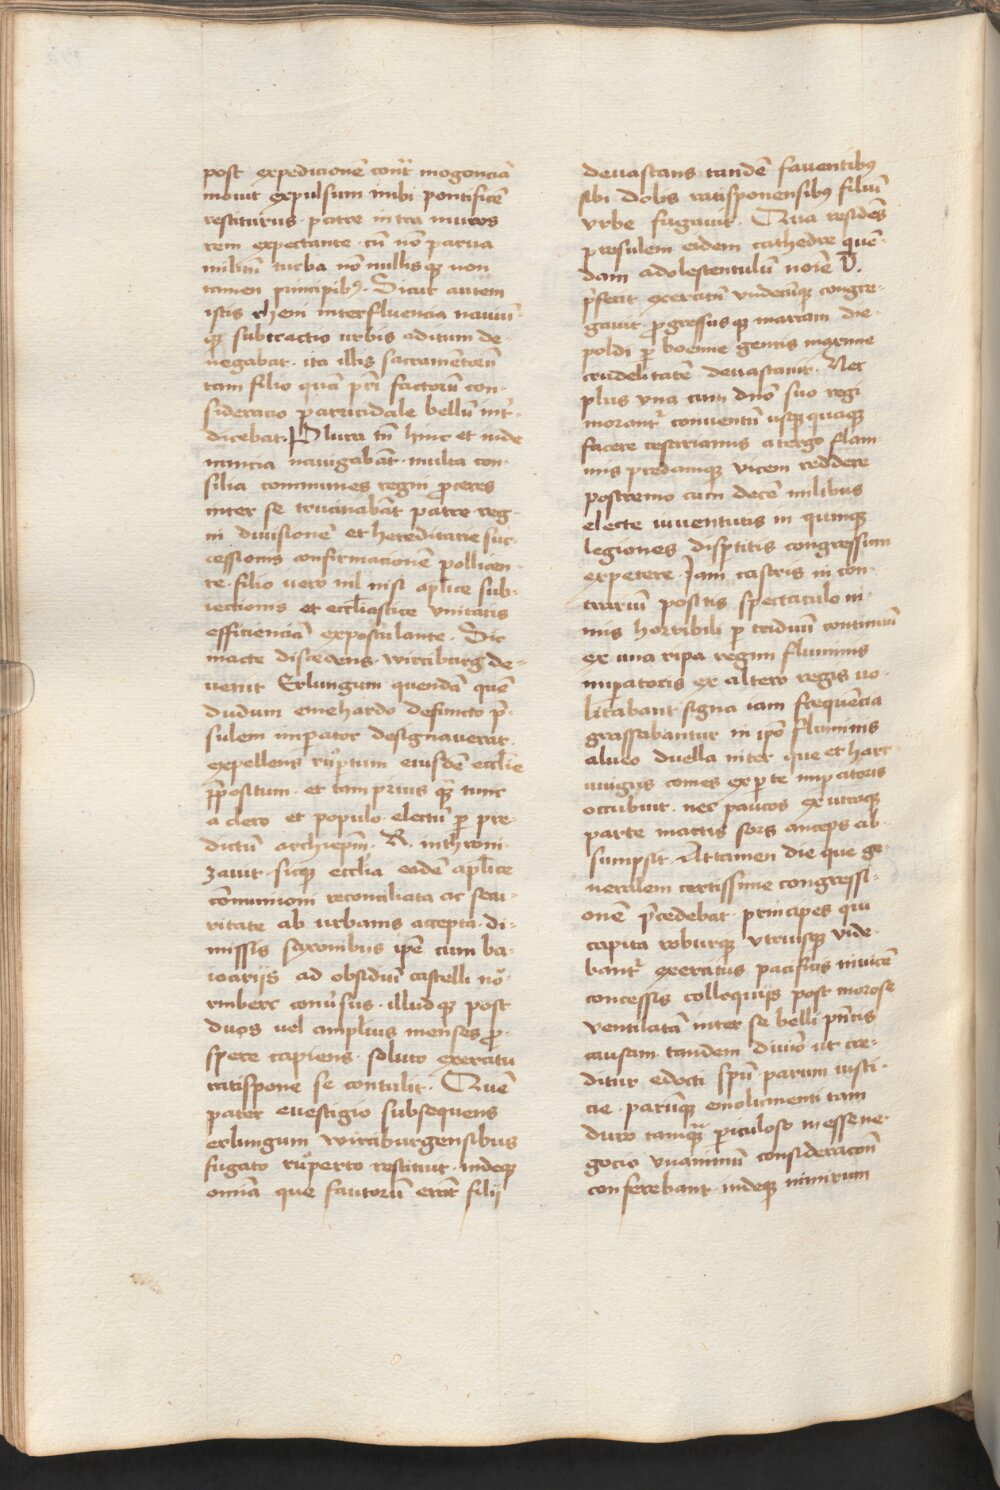 post expedicionē contͣ mogonciā
movit expulsum inibi pontificē
restiturus · patre intra muros
rem expectante · cū nō parva
militū turba nō nullis qꝫ non
tamen principibꝫ · Sicut autem
istis rheni interfluencia naviū
qꝫ subtractio urbis aditum de-
negabat · ita illis sacramētorū
tam filio quā pr̄i factorū con-
sideracio parricidale bellū int̄-
dicebat · Plura tn̄ hinc et inde
nuncia navigabāt · multa con-
silia communes regni p̄ceres
inter se trucinabāt patre reg-
ni divisionē et hereditarie suc-
cessionis confirmacionē pollicen-
te · filio vero nil nisi aplīce sub-
iectionis et eccl̄iastice unitatis
efficienciā expostulante · Sic
macte discedens · wirciburg de-
venit Erlungum quendā quē
dudum emehardo defuncto p̄-
sulem imperator designaverat ·
expellens rͦuptum eiusdē eccl̄ie
p̄positum · et tam prius qͣꝫ tunc
a clero et populo · electū ꝑ pre-
dictū archiep̄m · R · inthroni-
zavit · sicqꝫ eccl̄ia eadē aplīce
cōmunioni reconciliata ac secu-
ritate ab urbanis accepta · di-
missis saxonibus ip̄e cum ba-
ioariis ad obsidiū castelli nͦo-
rinberc conv̄sus · illud qꝫ post
duos vel amplius menses p̄-
spere capiens · soluto exercitu
ratispone se contulit · Quē
pater evestigio subsequens
erlungum wirciburgensibus
fugato rͦuperto restituit · indeqꝫ
omīa que fautorū erāt filii
devastans tandē faventibꝫ
sibi dolis ratisponensibꝫ filiū
urbe fugavit · Qua residēs
presulem eidem cathedre quē-
dam adolestentulū noīe V̊.
p̄fecit exercitū undecūqꝫ congre-
gavit · p̄gressus qꝫ marcam die-
poldi ꝑ boemie gentis maxime
crudelitatē devastavit · Nec
plus una cum dn̄o suo regi
morantʳ conventū usqꝫ quaqꝫ
facere cestrianus a tergo flam
mis predamqꝫ vicem reddere
postremo cum decē milibus
electe iuventutis in quinqꝫ
legiones disp̄titis congressum
expetere · Jam castris in con-
trariū positis spectaculo ni-
mis horribili ꝑ triduū continuū
ex una ripa regini fluminis
imperatoris ex altero regis vo-
litabant signa iam frequēcia
grassabantur in ip̄o fluminis
alveo duella inter que et hart-
wigus comes ex ꝑte imp̄atoris
occubuit · nec paucos ex utroqꝫ
parte martis sors anceps ab-
sumpsit · Attamen die que ge-
neralem certissime congressi-
onē p̄cedebat · principes qui
capita roburqꝫ utriusqꝫ vide-
bantʳ exercitus pacificis invicē
concessis colloquiis post morose
ventilatā inter se belli pn̄tis
causam tandem divīo ut cre-
ditur edocti spū · parum iusti-
cie · parūqꝫ emolumenti tam
duro tamqꝫ periculoso inesse ne-
gocio unanimū consideracōn
conferebant · indeqꝫ nimirum